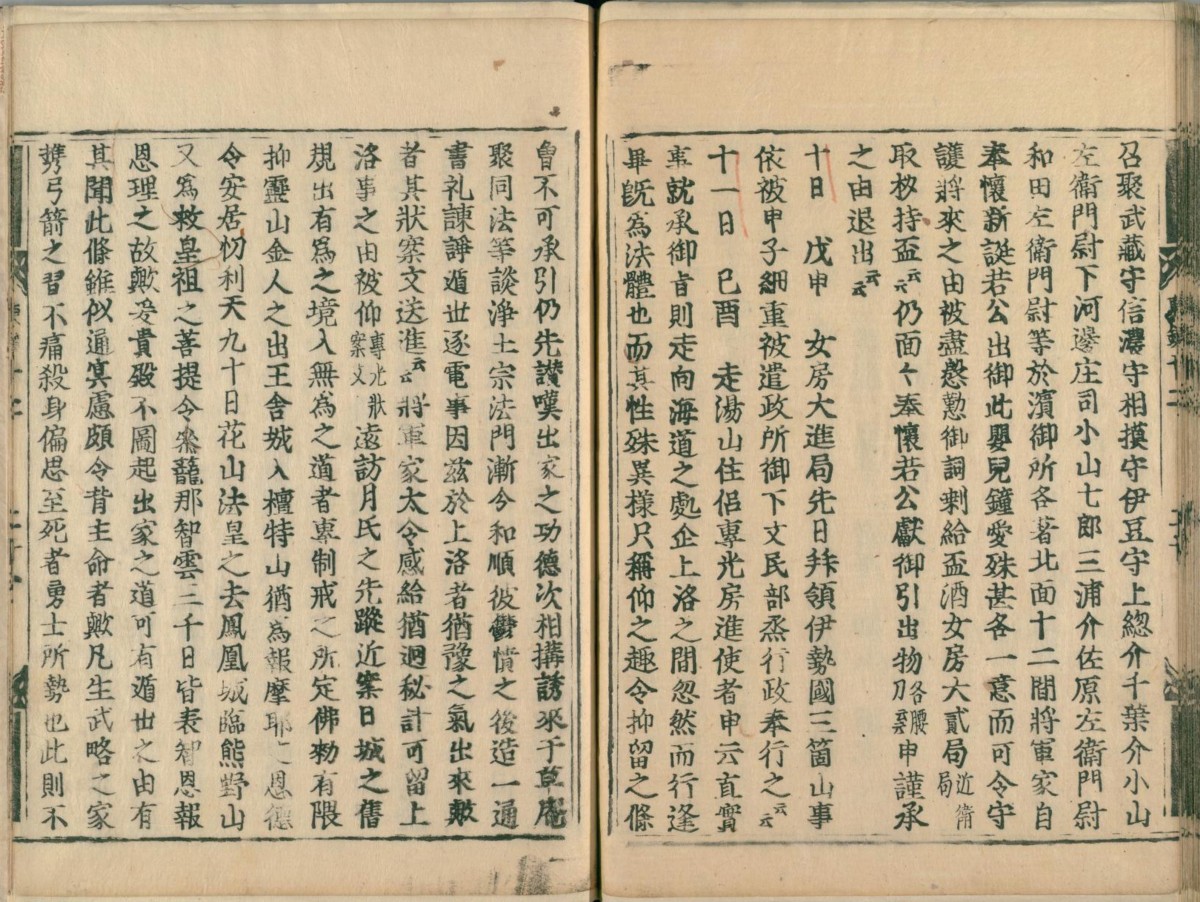 召聚武藏守信濃守相摸守伊豆守上總介千葉介小山
左衛門尉下河邊庄司小山七郎三浦介佐原左衛門尉
和田左衛門尉等於濱御所各著北面十二間將軍家自
奉懷新誕若公出御此嬰兒鐘愛殊甚各一意而可令守
護將來之由被盡慇懃御詞剩給盃酒女房大貳局近衛局
取杓持盃云云仍面々奉懷若公獻御引出物各腰刀申謹承
之由退出云云
十日 戊申 女房大進局先日拜領伊勢國三箇山事
依被申子細重被遣政所御下文民部烝行政奉行之云云
十一日 己酉 走湯山住侶專光房進使者申云直實
事就承御旨則走向海道之處企上洛之間忽然而行逢
畢旣為法體也而其性殊異樣只稱仰之趣令抑留之條
曾不可承引仍先讃嘆出家之功德次相搆誘來于草庵
聚同法等談淨土宗法門漸令和順彼欝憤之後造一通
書礼諫諍遁世逐電事因茲於上洛者猶豫之氣出來歟
者其狀案文送進云云將軍家太令感給猶廻秘計可留上
洛事之由被仰專光狀案文遠訪月氏之先蹤近案日域之舊
規出有為之境入無為之道者專制戒之所定佛勅有限
抑靈山金人之出王舍城入檀特山猶為報摩耶之恩德
令安居忉利天九十日花山法皇之去鳳凰城臨熊野山
又為救皇祖之菩提令參籠那智雲三千日皆表智恩報
恩理之故歟爰貴殿不圖起出家之道可有遁世之由有
其聞此條雖似通冥慮頗令背主命者歟凡生武略之家
携弓箭之習不痛殺身偏思至死者勇士所勢也此則不